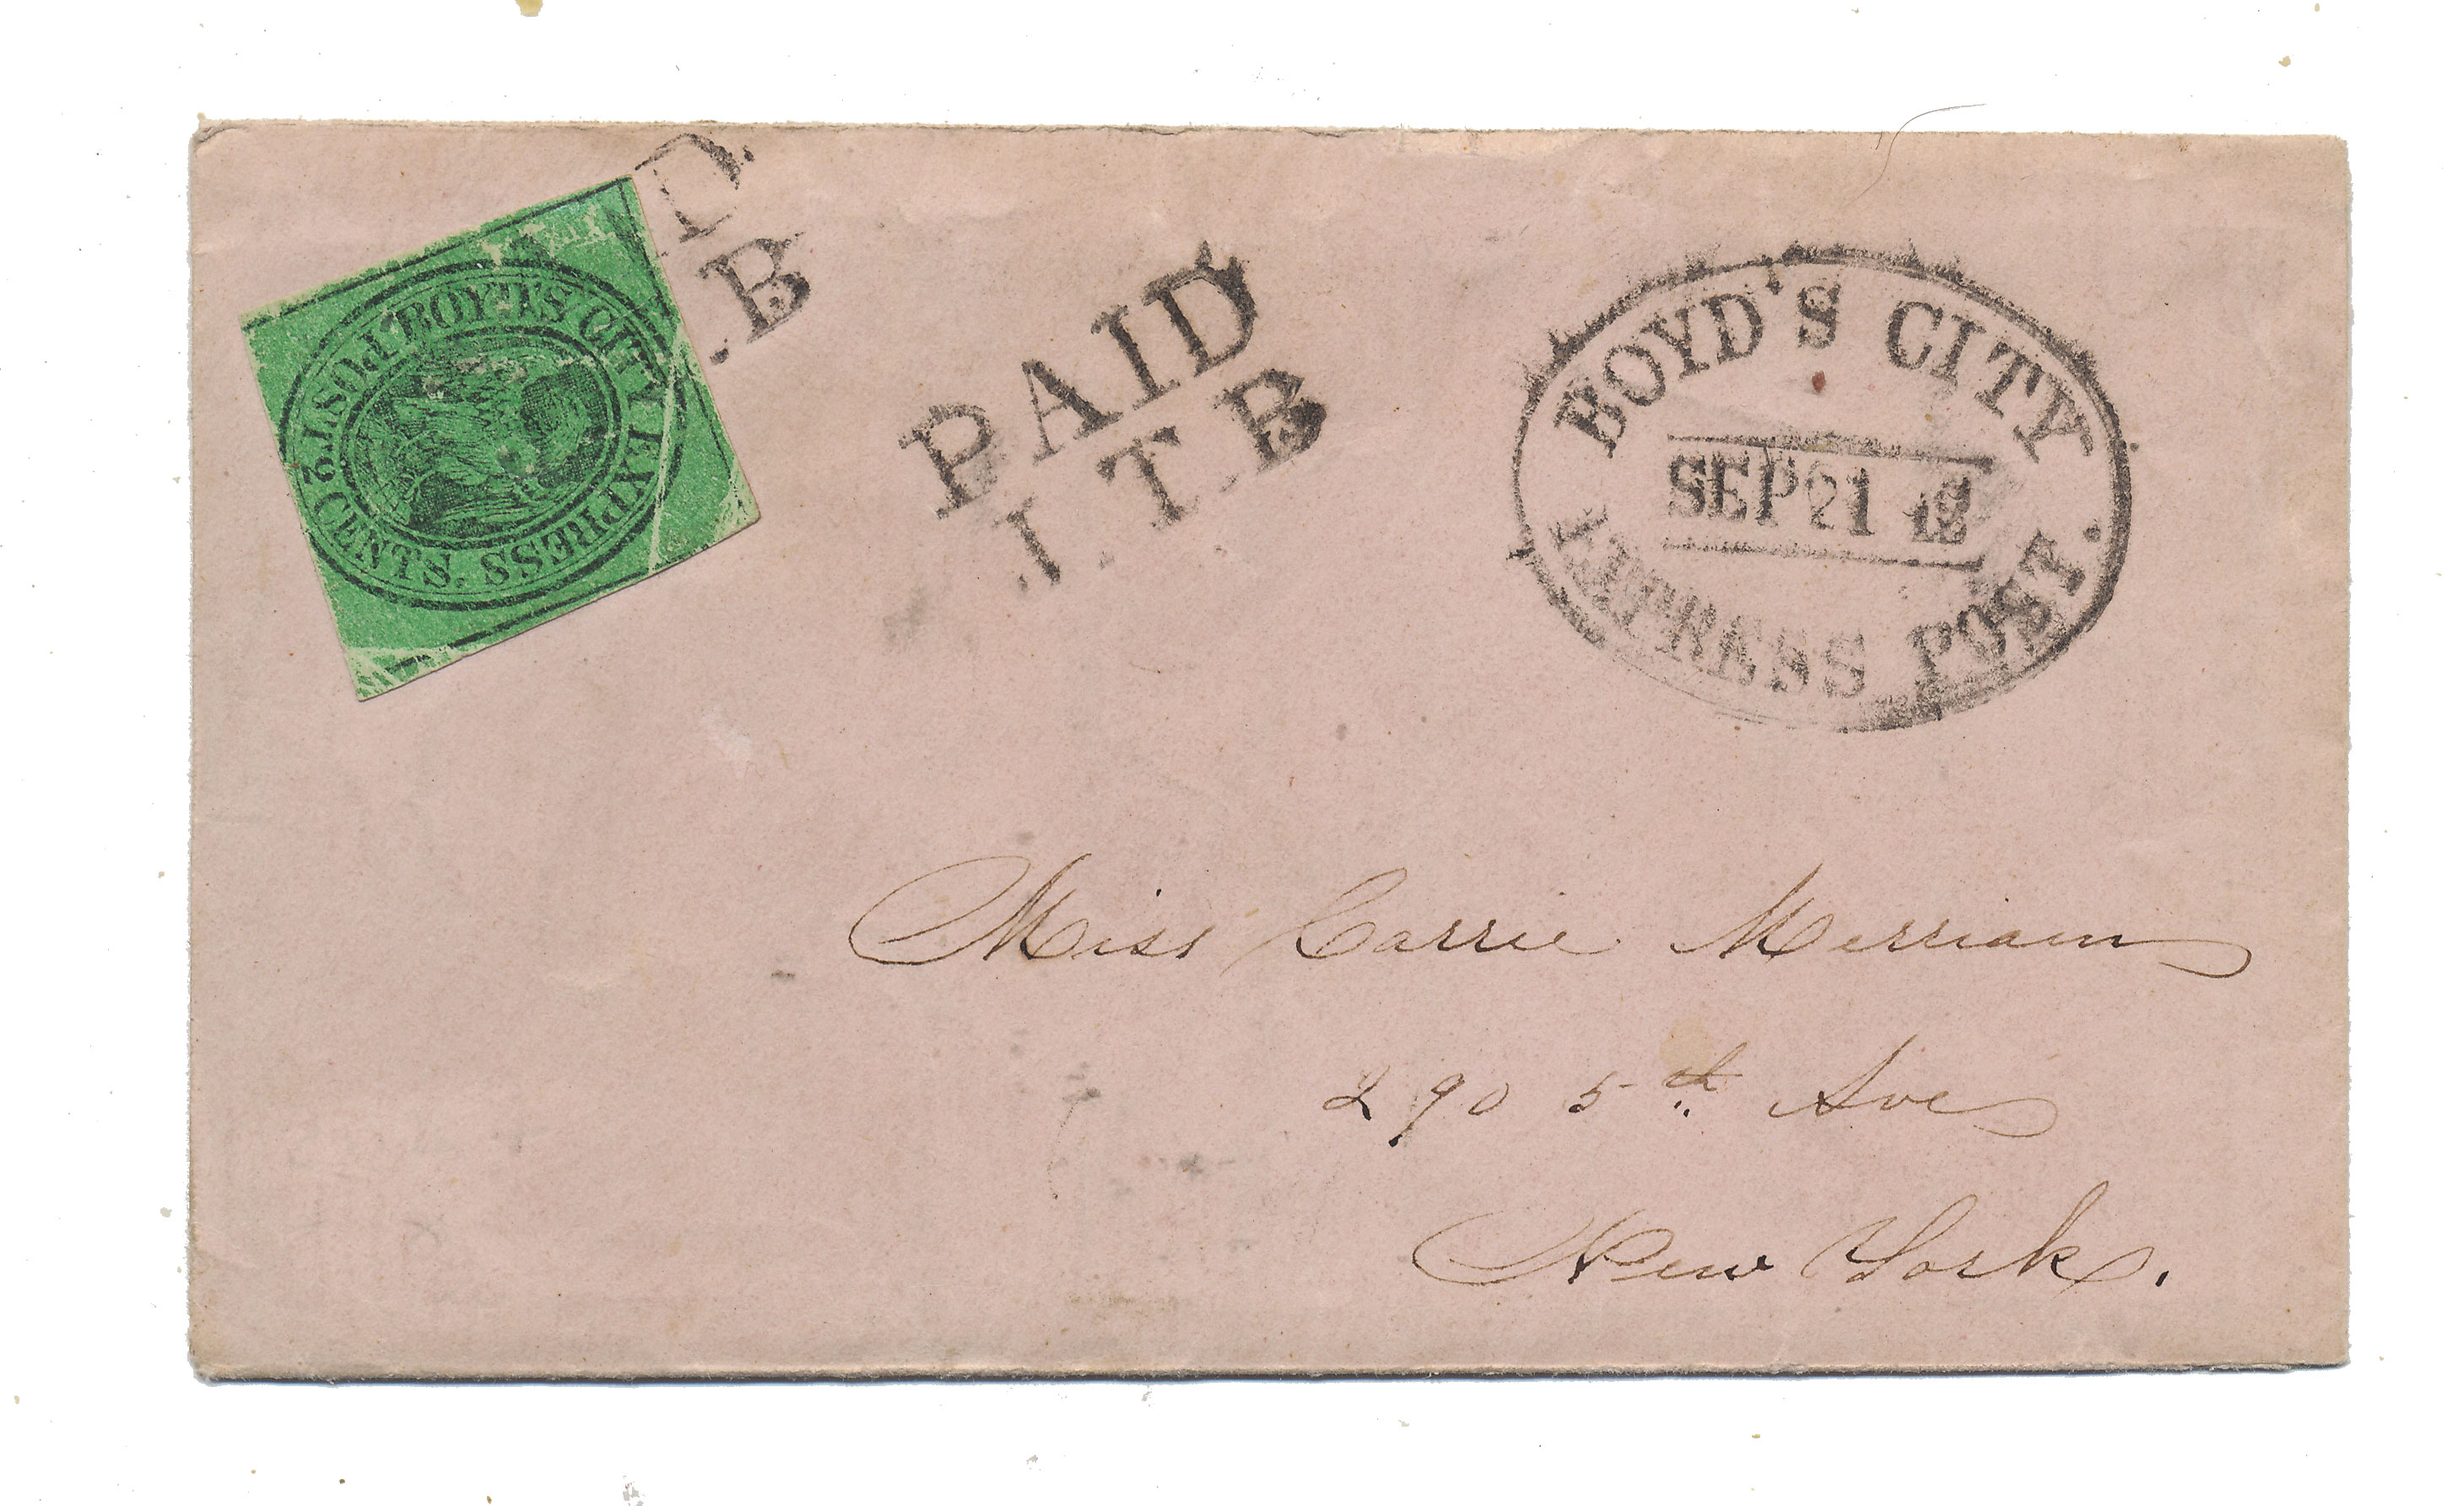 BOYD'S CITY EXPRESS POST. 2 CENTS.
D
.B
PAID
J.T.B
BOYD'S CITY
SEP 21 12
EXPRESS POST.
Miss Carrie Merriam
290 5th Ave
New York.